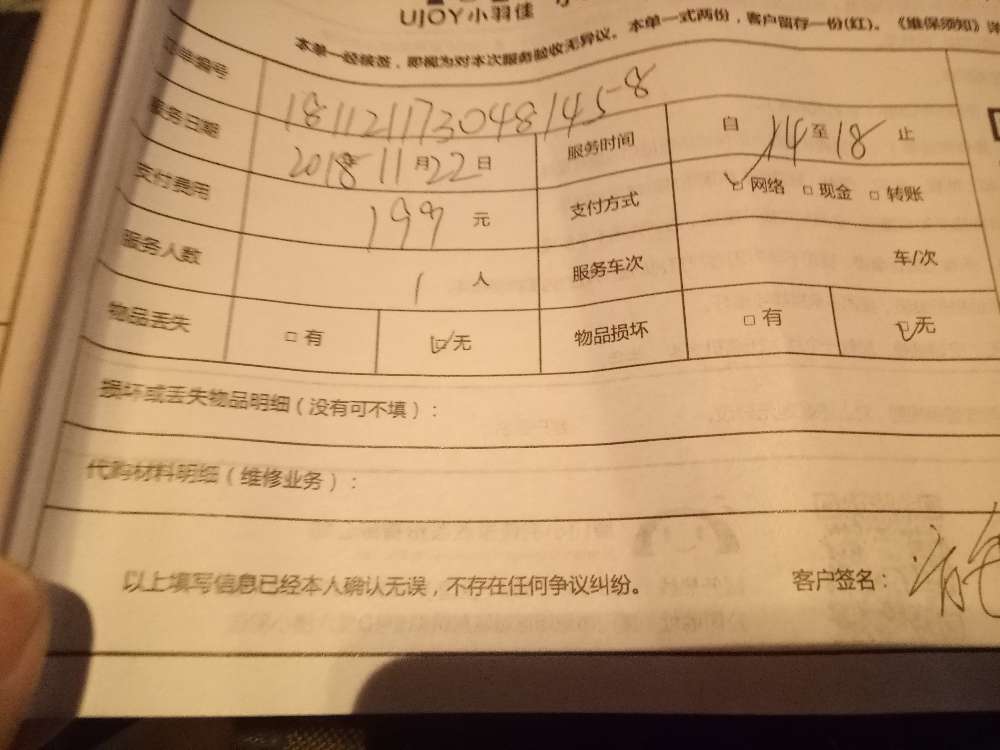 UJOY小羽佳
本单一经续签，即视为对本次服务验收无异议。本单一式两份，客户留存一份(红)。《维保须知》详
订单编号 181121173048145-8
服务日期 2018年11月22日 服务时间 自14至18止
支付费用 199元 支付方式 网络 □现金 □转账
服务人数 1人 服务车次 车/次
物品丢失 □有 无 物品损坏 □有 无
损坏或丢失物品明细（没有可不填）：
代购材料明细（维修业务）：
以上填写信息已经本人确认无误，不存在任何争议纠纷。 客户签名：